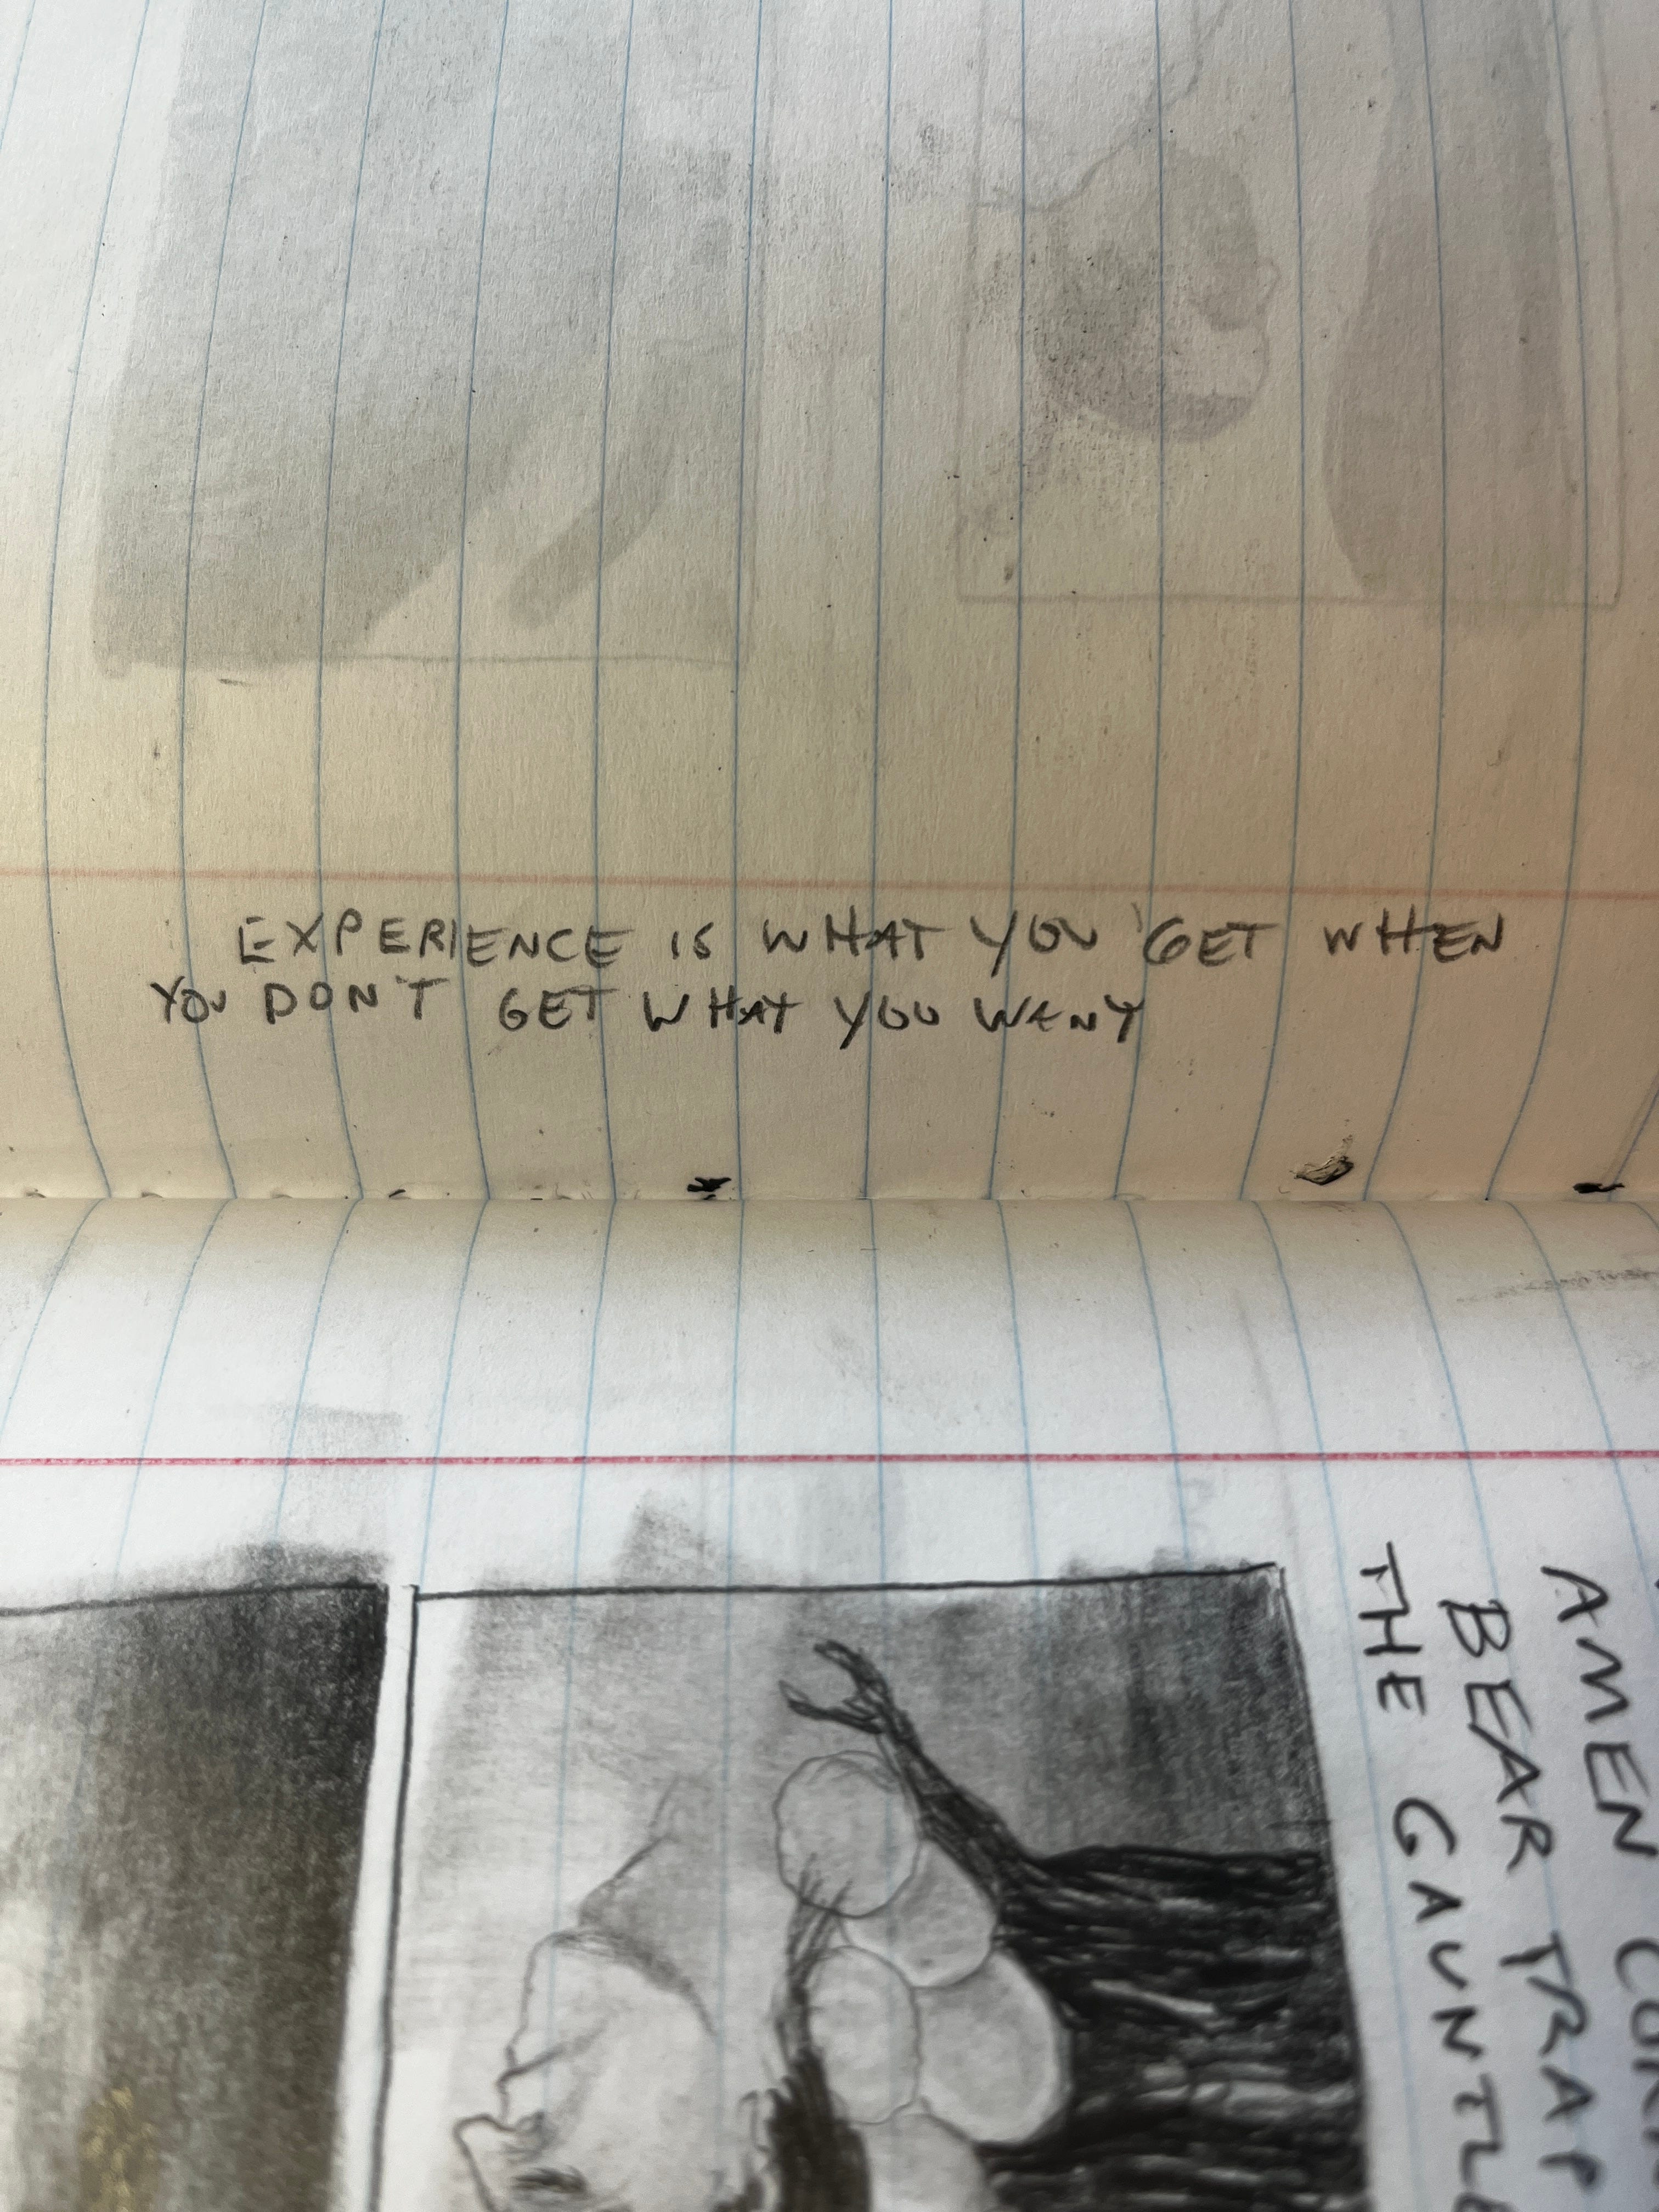 EXPERIENCE IS WHAT YOU GET WHEN
YOU DON'T GET WHAT YOU WANT
AMEN
BEAR TRAP
THE